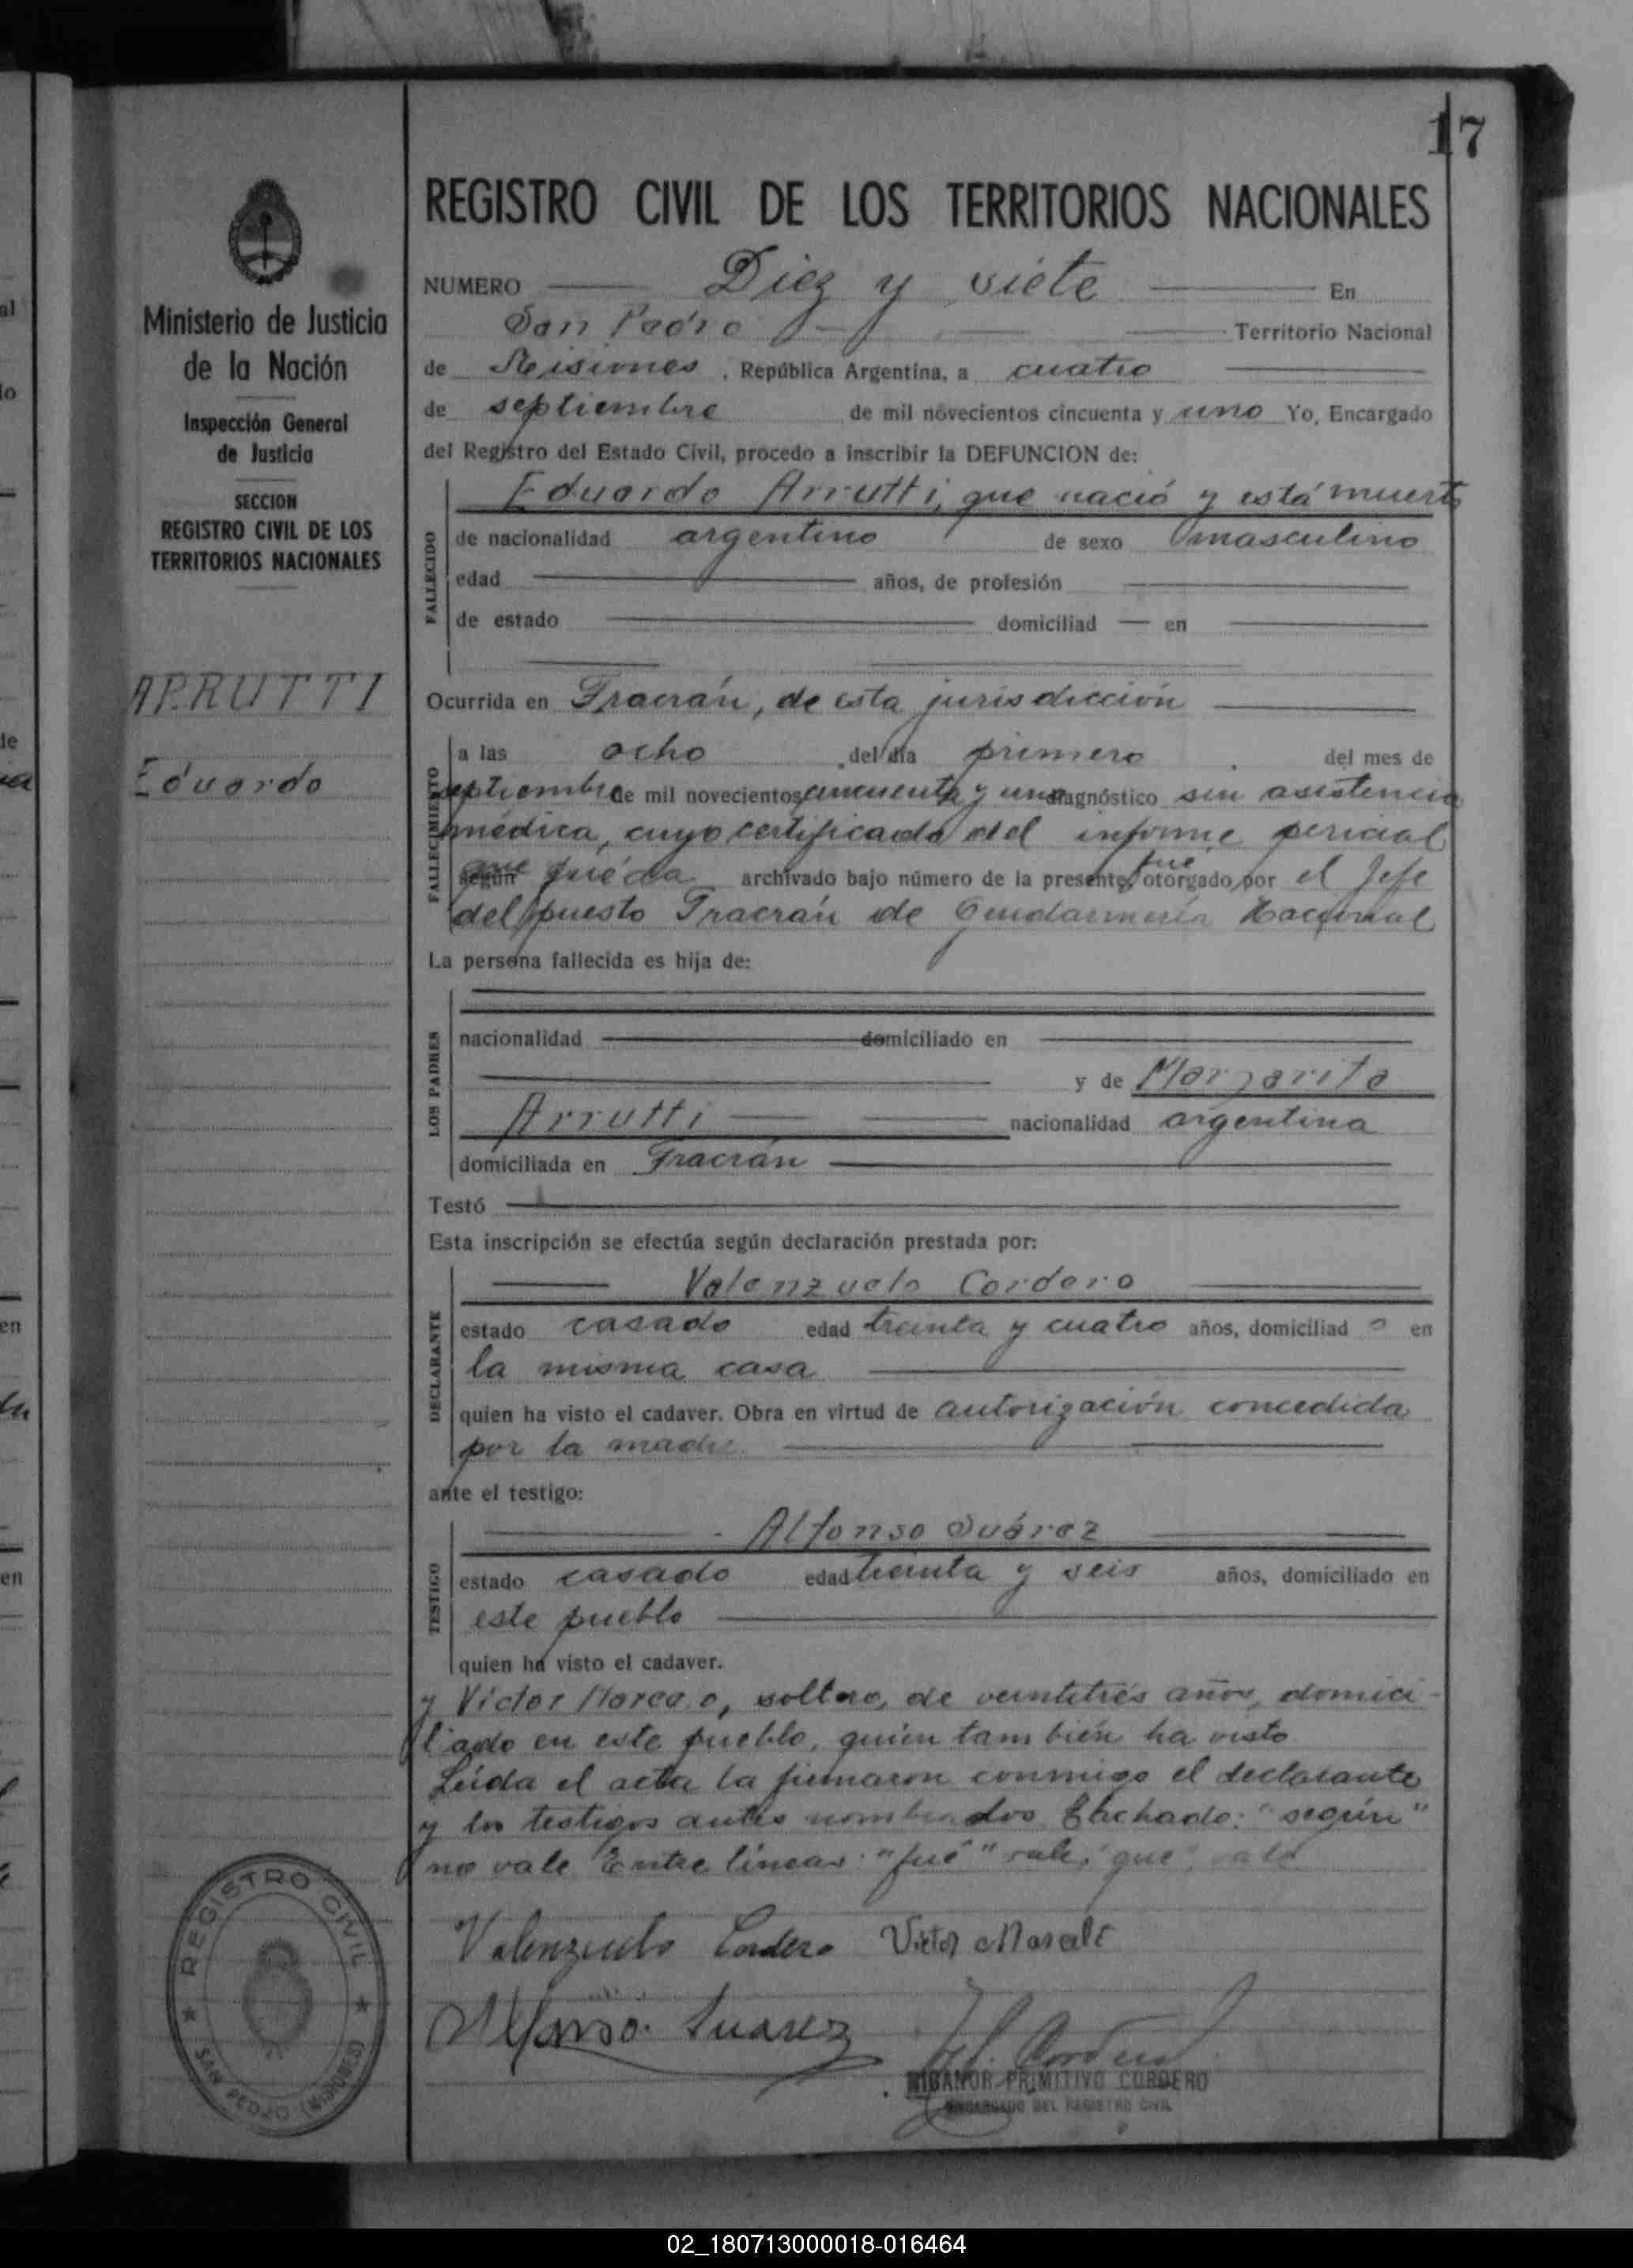 17
REGISTRO CIVIL DE LOS TERRITORIOS NACIONALES
Ministerio de Justicia
de la Nación
Inspección General
de Justicia
SECCION
REGISTRO CIVIL DE LOS
TERRITORIOS NACIONALES
ARRUTTI
Eduardo
NUMERO Diez y siete En
San Pedro Territorio Nacional
de Misiones, República Argentina, a cuatro
de septiembre de mil novecientos cincuenta y uno Yo, Encargado
del Registro del Estado Civil, procedo a inscribir la DEFUNCION de:
FALLECIDO
Eduardo Arrutti, que nació y está muerto
de nacionalidad argentino de sexo masculino
edad años, de profesión
de estado domiciliad en
Ocurrida en Fracrán, de esta jurisdicción
FALLECIMIENTO
a las ocho del día primero del mes de
septiembre de mil novecientos cincuenta y uno diagnóstico sin asistencia
médica, cuyo certificado del informe pericial
según que quéda archivado bajo número de la presente, fué otorgado por el Jefe
del puesto Fracrán de Gendarmería Nacional
La persona fallecida es hija de:
LOS PADRES
nacionalidad domiciliado en
y de Margarita
Arrutti nacionalidad argentina
domiciliada en Fracrán
Testó
Esta inscripción se efectúa según declaración prestada por:
DECLARANTE
Valenzuela Cordero
estado casado edad treinta y cuatro años, domiciliad o en
la misma casa
quien ha visto el cadaver. Obra en virtud de autorización concedida
por la madre.
ante el testigo:
TESTIGO
Alfonso Suárez
estado casado edad treinta y seis años, domiciliado en
este pueblo
quien ha visto el cadaver.
y Víctor soltero, de veintitrés años, domici-
liado en este pueblo, quien también ha visto
Leída el acta la firmaron conmigo el declarante
y los testigos antes nombrados Tachado: "según"
no vale Entre líneas: "fué" vale, "que" vale
Valenzuelo Cordero Victor
Alfonso Suarez Cordero
NICANOR PRIMITIVO CORDERO
ENCARGADO DEL REGISTRO CIVIL
REGISTRO CIVIL
SAN PEDRO (MISIONES)
02_180713000018-016464